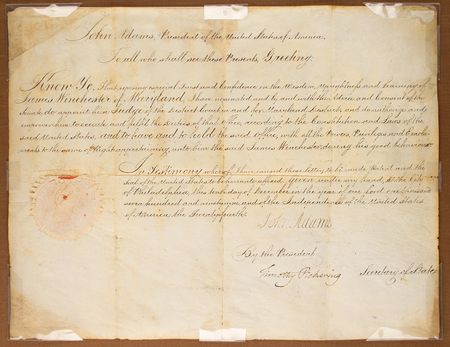 John Adams, President of the United States of America,
To all who shall see these Presents, Greeting:
Know Ye, That reposing especial Trust and Confidence in the Wisdom, Uprightness and Learning of
James Winchester of Maryland, I have nominated, and by and with the Advice and Consent of the
Senate do appoint him Judge of the District Court in and for Maryland District, and do authorize and
empower him to execute and fulfil the Duties of that Office, according to the Constitution and Laws of the
said United States, and to have and to hold the said Office, with all the Powers, Privileges and Emolu-
ments to the same of Right appertaining unto him the said James Winchester during his good behaviour.
In Testimony whereof I have caused these Letters to be made Patent and the
Seal of the United States to be hereunto affixed. Given under my hand, at the City
of Philadelphia, this tenth day of December in the year of our Lord one thousand
seven hundred and ninety nine, and of the Independence of the United States
of America, the Twenty fourth.
John Adams
By the President
Timothy Pickering Secretary of State